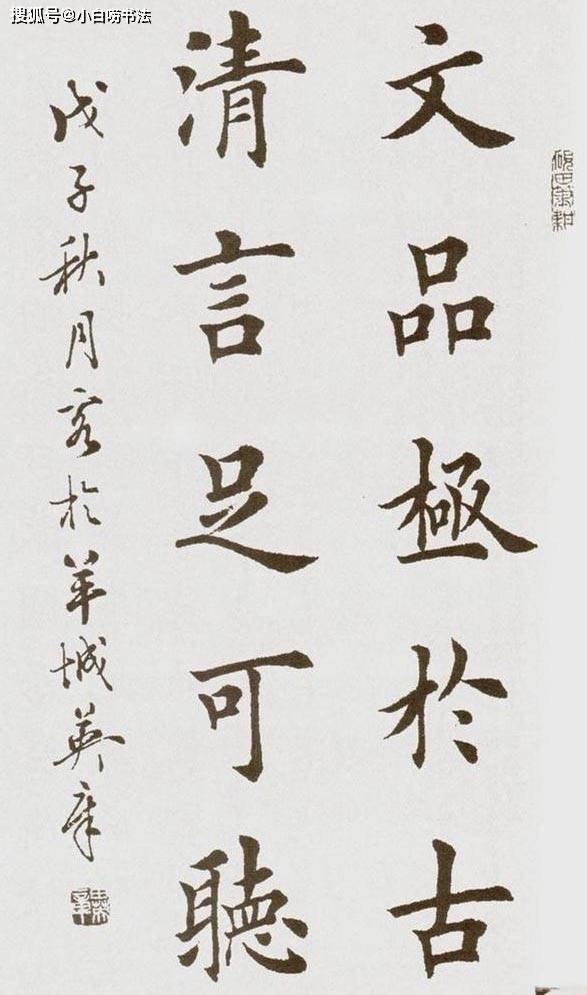 搜狐号@小白唠书法
文品極於古
清言足可聽
戊子秋月客於羊城英章